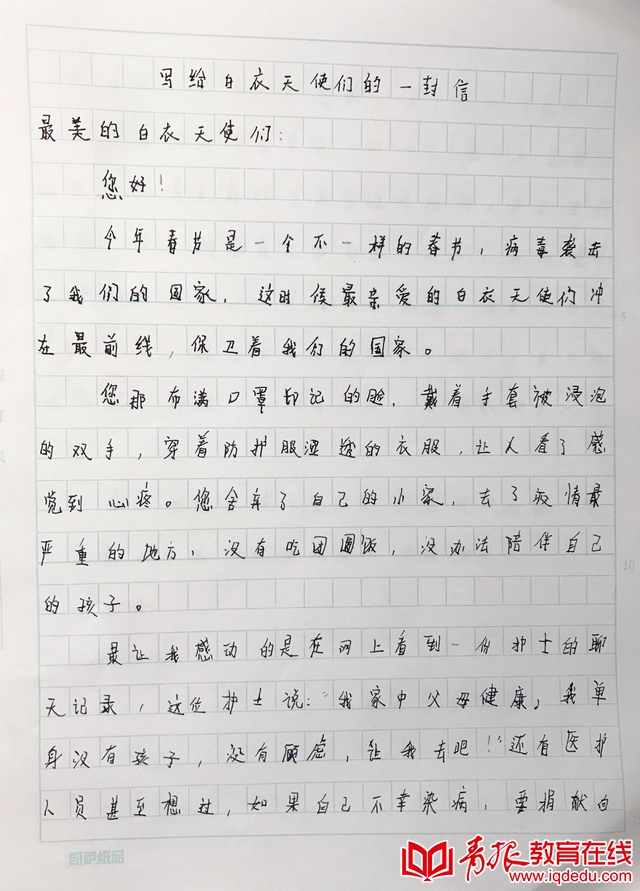 写给白衣天使们的一封信
最美的白衣天使们:
您好!
今年春节是一个不一样的春节，病毒袭击
了我们的国家，这时候最亲爱的白衣天使们冲
在最前线，保卫着我们的国家。
您那布满口罩印记的脸，戴着手套被浸泡
的双手，穿着防护服湿透的衣服，让人看了感
觉到心疼。您舍弃了自己的小家，去了疫情最
严重的地方，没有吃团圆饭，没办法陪伴自己
的孩子。
最让我感动的是在网上看到一份护士的聊
天记录，这位护士说：“我家中父母健康，我单
身没有孩子，没有顾虑，让我去吧！”还有医护
人员甚至想过，如果自己不幸染病，要捐献自
凯萨纸品
青报教育在线
www.iqdedu.com